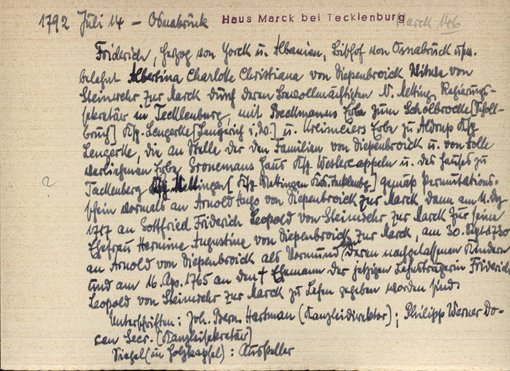 1792 Juli 14 – Osnabrück Haus Marck bei Tecklenburg Marck 146
Friderich, Herzog von Yorck u. Albanien, Bischof von Osnabrück usw.
belehnt Albertina Charlotte Christiana von Diepenbroick Witwe von
Steinwehr zur Marck durch deren Bevollmächtigten N. Meting, Regierungs-
sekretär in Tecklenburg, mit Beckmanns Erbe zum Schölbrocke
Ksp. Lengerke u. Kreimeiers Erbe zu Aldrup Ksp.
Lengerke, die an Stelle der den Familien von Diepenbroick u. von
verliehenen Erbe Gronemans Haus Ksp. Westercappeln u. des Hauses zu
Tackenberg Ksp. Mettingen gemäß Permutations-
schein vormals an Arnold von Diepenbroick zur Marck dann am 11. Dez
1717 an Gottfried Friderich Leopold von Steinwehr zur Marck für seine
Ehefrau Hermine Augustine von Diepenbroick zur Marck, am 30. Sept 1730
an Arnold von Diepenbroick als Vormund deren nachgelassenen Kindern
und am 16. Apr. 1765 an den † Ehemann der jetzigen Lehnsträgerin Friderich
Leopold von Steinwehr zur Marck zu Lehn gegeben worden sind.
Unterschriften: Joh. Bern. Hartman (Kanzleidirektor); Philipp Werner Do-
cen Secr. (Kanzleisekretär)
Siegel (in Holzkapsel): Aussteller